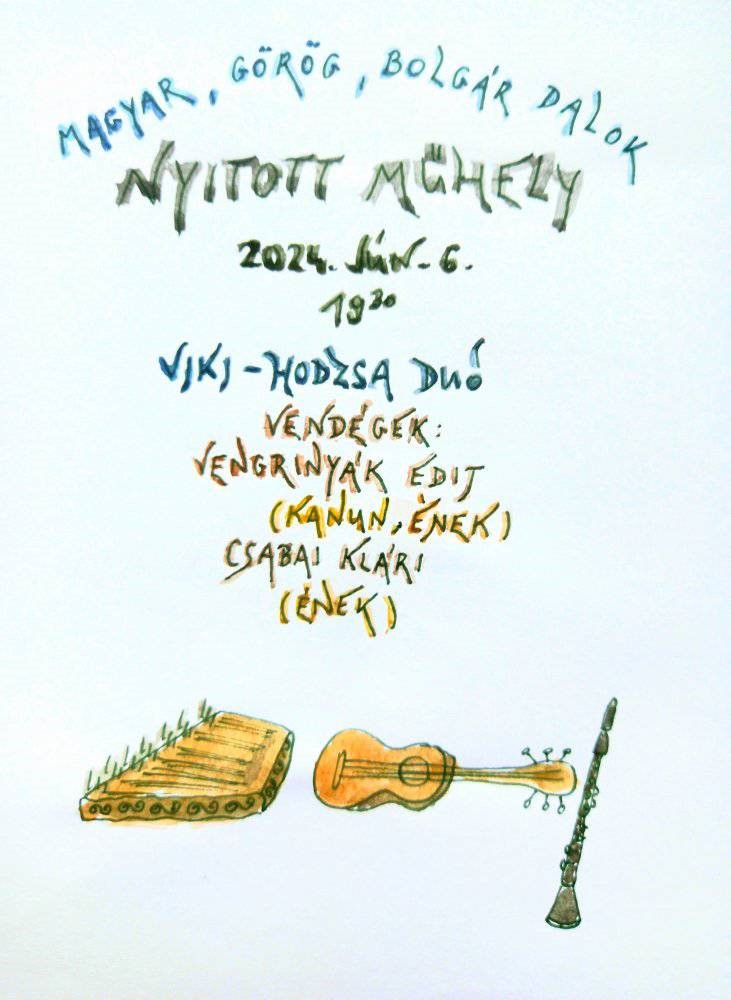 MAGYAR, GÖRÖG, BOLGÁR DALOK
NYITOTT MŰHELY
2024. JÚN. 6.
19³⁰
VIKI-HODZSA DUÓ
VENDÉGEK:
VENGRINYÁK EDIT
(KANUN, ÉNEK)
CSABAI KLÁRI
(ÉNEK)